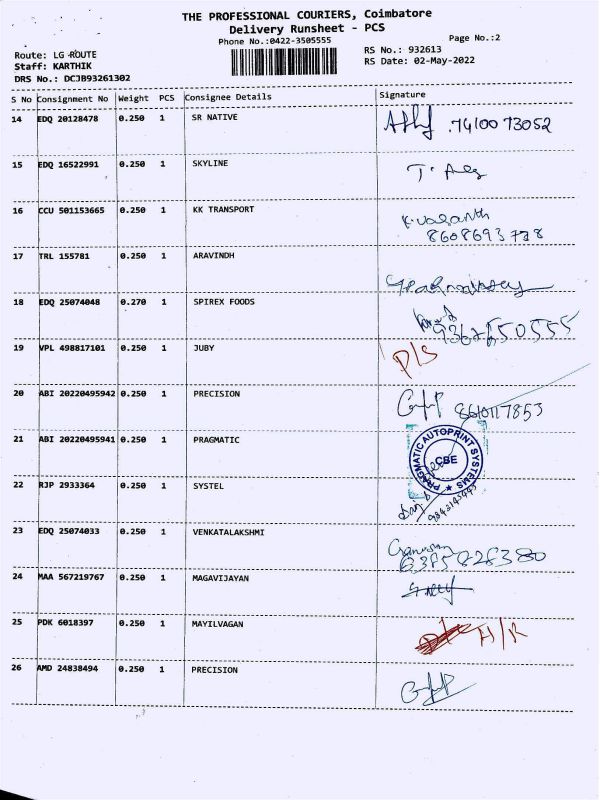 THE PROFESSIONAL COURIERS, Coimbatore
Delivery Runsheet - PCS
Phone No.:0422-3505555
Page No.:2
Route: LG ROUTE
RS No.: 932613
Staff: KARTHIK
RS Date: 02-May-2022
DRS No.: DCJB93261302
S No Consignment No Weight PCS Consignee Details Signature
14 EDQ 20128478 0.250 1 SR NATIVE 7410073052
15 EDQ 16522991 0.250 1 SKYLINE
16 CCU 501153665 0.250 1 KK TRANSPORT K.Vasanth
8608693728
17 TRL 155781 0.250 1 ARAVINDH
18 EDQ 25074048 0.270 1 SPIREX FOODS
19 VPL 498817101 0.250 1 JUBY P/S
20 ABI 20220495942 0.250 1 PRECISION 8610117853
21 ABI 20220495941 0.250 1 PRAGMATIC PRAGMATIC AUTOPRINT SYSTEMS CBE
22 RJP 2933364 0.250 1 SYSTEL
23 EDQ 25074033 0.250 1 VENKATALAKSHMI
24 MAA 567219767 0.250 1 MAGAVIJAYAN
25 PDK 6018397 0.250 1 MAYILVAGAN H/R
26 AMD 24838494 0.250 1 PRECISION